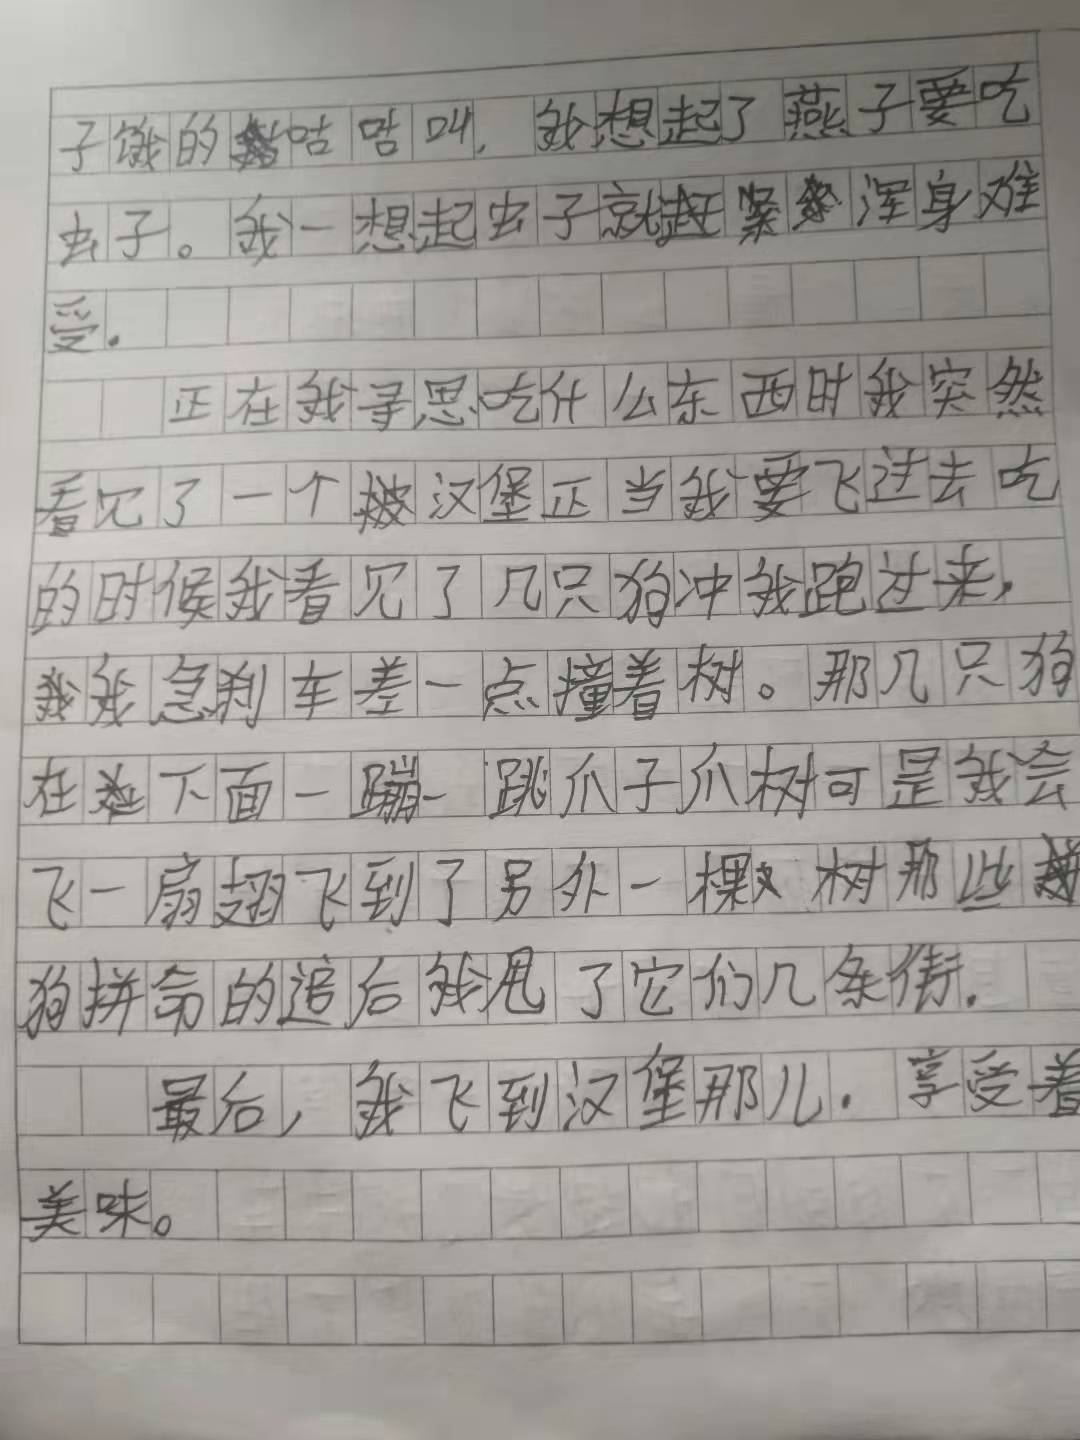 子饿的咕咕叫，我想起了燕子要吃
虫子。我一想起虫子就浑身难
受.
正在我寻思吃什么东西时我突然
看见了一个汉堡正当我要飞过去吃
的时候我看见了几只狗冲我跑过来，
我我急刹车差一点撞着树。那几只狗
在下面一蹦一跳爪子爪树可是我会
飞一扇翅飞到了另外一棵树那些
狗拼命的追后我甩了它们几条街.
最后，我飞到汉堡那儿.享受着
美味。